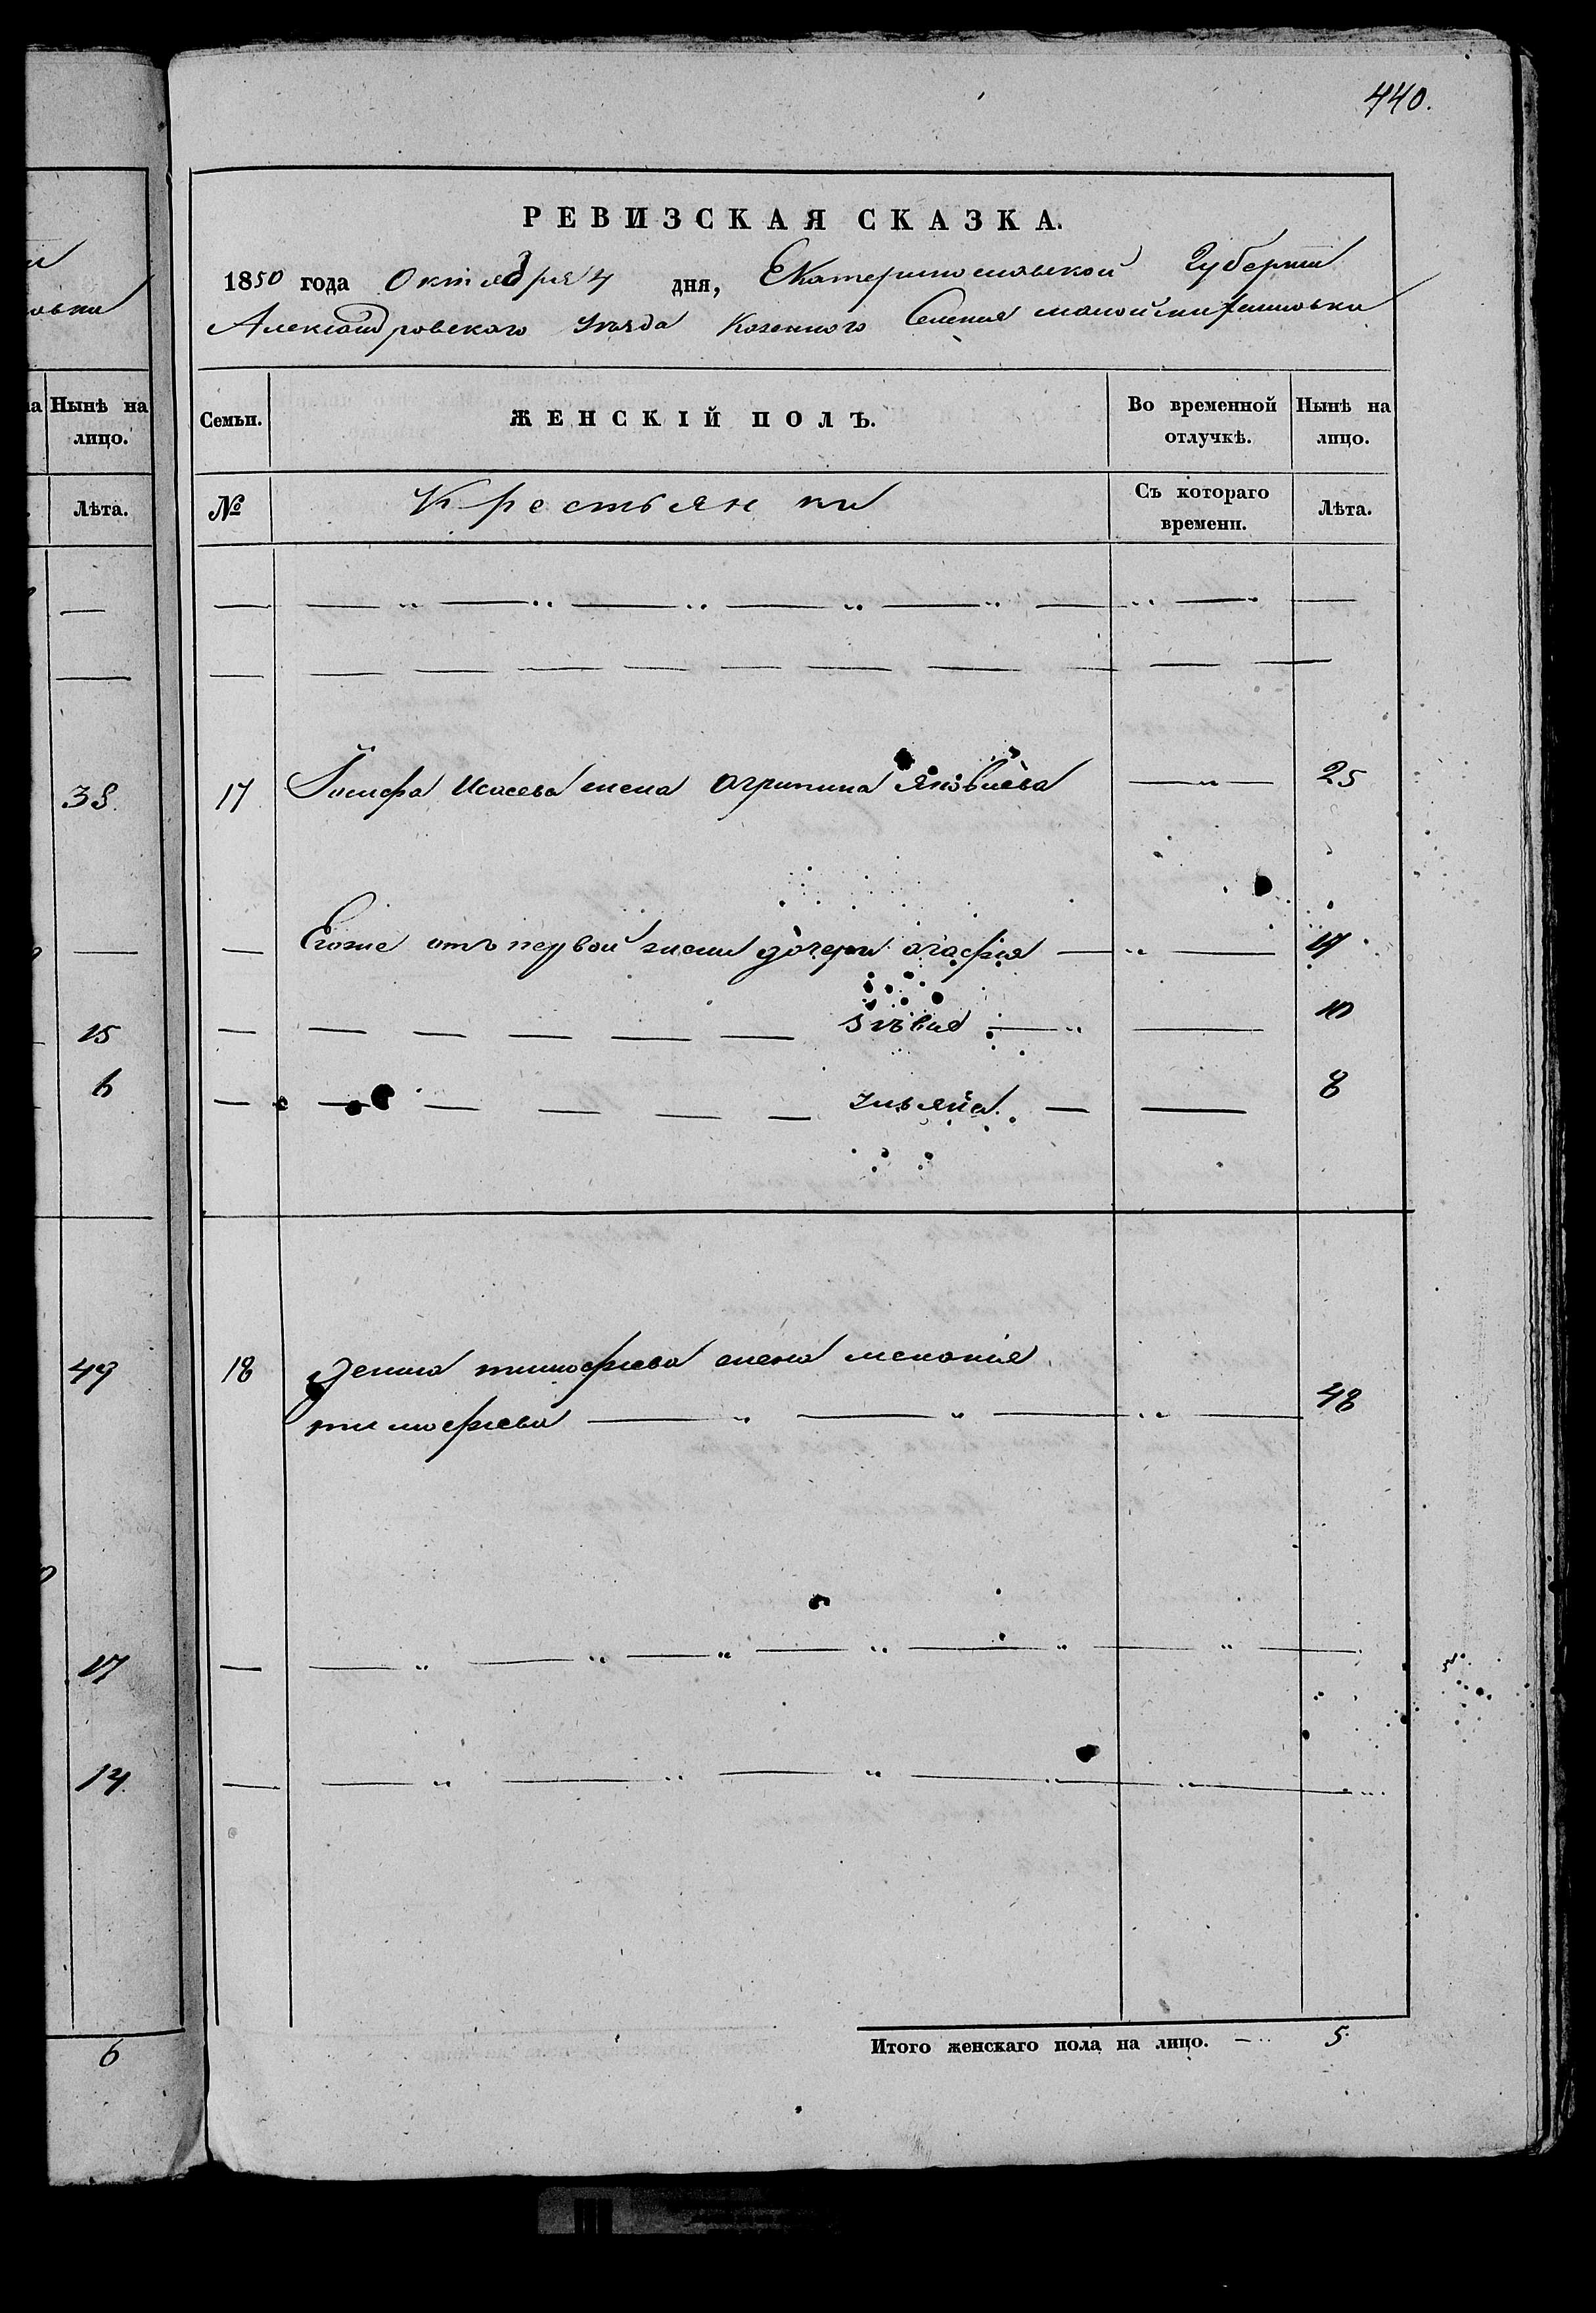 440.
РЕВИЗСКАЯ СКАЗКА.
1850 года Октября 4 дня, Екатеринославской Губернии
Александровского уѣзда Козенного Селения малой михайловки
овки
Нынѣ на лицо.
Семьи.
ЖЕНСКІЙ ПОЛЪ.
Во временной отлучкѣ.
Нынѣ на лицо.
Лѣта.
№
Крестьянки
Съ котораго времени.
Лѣта.
38.
17 Іосифа Исаева жена Агрипина Яковлева — „ — 25
Егоже отъ первой жены дочери агафия — „ — 17
15
— — — — — — — „ — 10
6
— — — — — — — ульяна — — 8
49
18 Дениса тимофиева жена меланія
тимофиева — „ — „ — „ — 48
17
14.
6
Итого женскаго пола на лицо. — 5.